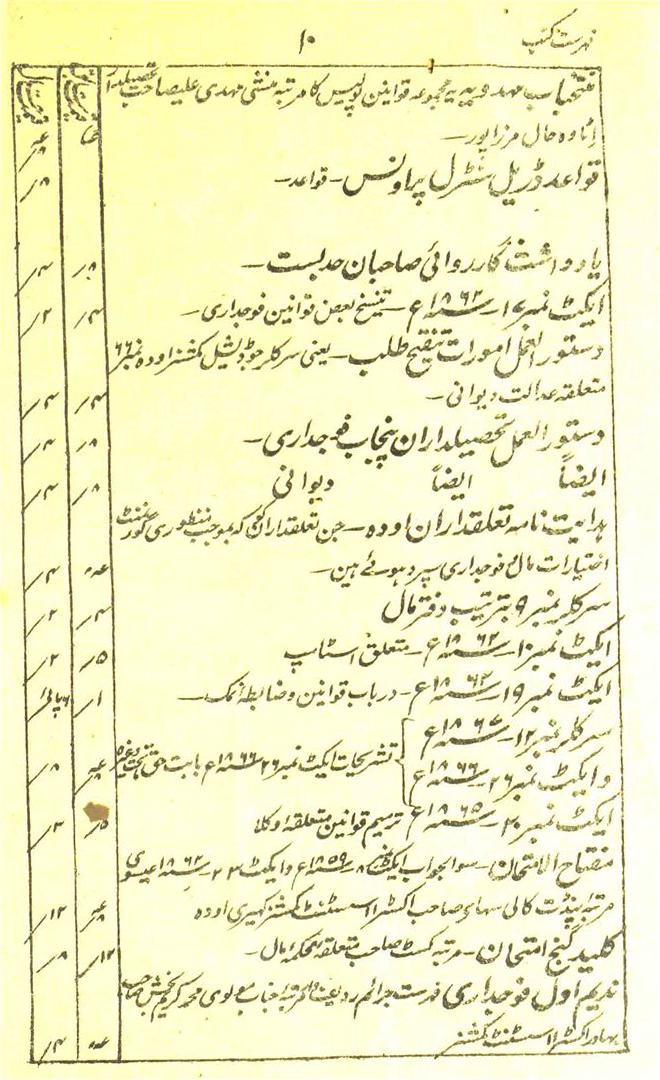 فہرست کتب
۱۰
منتخبات مہدویہ یہ مجموعہ قوانین پولیس کا مرتبہ منشی مہدی علیصاحب تحصیلدار
اٹاوہ حال مرزاپور۔
قواعد ڈریل سنٹرل پراونس۔ قواعد۔ ۸/
یادداشت کارروائی صاحبان حدبست۔ ۸/ ۴/
ایکٹ نمبر ۱۷۔ سنہ ۱۸۶۲ع۔ تنسیخ بعض قوانین فوجداری۔ ۴/ ۲/
دستور العمل امورات تنقیح طلب۔ یعنی سرکلر جوڈیشیل کمشنر اودہ نمبر ۶۶
متعلقہ عدالت دیوانی۔ ۴/ ۴/
دستور العمل تحصیلداران پنجاب فوجداری۔ ۸/ ۴/
ایضاً ایضاً دیوانی ۸/ ۴/
ہدایت نامہ تعلقداران اودہ۔ جن تعلقداران کو کہ بموجب منظوری گورنمنٹ
اختیارات مال و فوجداری سپرد ہوئے ہین۔ عہ ۴/
سرکلر نمبر ۹ بترتیب دفتر مال ۴/ ۲/
ایکٹ نمبر ۱۰۔ سنہ ۱۸۶۲ع۔ متعلق اسٹامپ ۵/ ۲/
ایکٹ نمبر ۱۹۔ سنہ ۱۸۶۲ع۔ درباب قوانین و ضابطہ نمک۔ ۱/ ۶ پائی
سرکلر نمبر ۱۲۔ سنہ ۱۸۶۷ع
و ایکٹ نمبر ۲۶۔ سنہ ۱۸۶۶ع
تشریحات ایکٹ نمبر ۲۶ سنہ ۱۸۶۶ع بابت حق ۸/
ایکٹ نمبر ۲۰۔ سنہ ۱۸۶۵ع ترمیم قوانین متعلقہ وکلا ۵/ ۳/
مفتاح الامتحان۔ سوالجواب ایکٹ ۸۔ سنہ ۱۸۵۹ع و ایکٹ ۲۳۔ سنہ ۱۸۶۱ عیسوی
مرتبہ پنڈت کالی سہای صاحب اکسٹرا اسسٹنٹ کمشنر کہیری اودہ ۱۲/
کلید گنج امتحان۔ مرتبہ کست صاحب متعلقہ محکمہ مال۔ ۱۲/ ۸/
ندیم اول فوجداری فہرست جرائم مرتبہ جناب مولوی محمد کریم بخش صاحب
بہادر اکسٹرا اسسٹنٹ کمشنر عہ ۴/